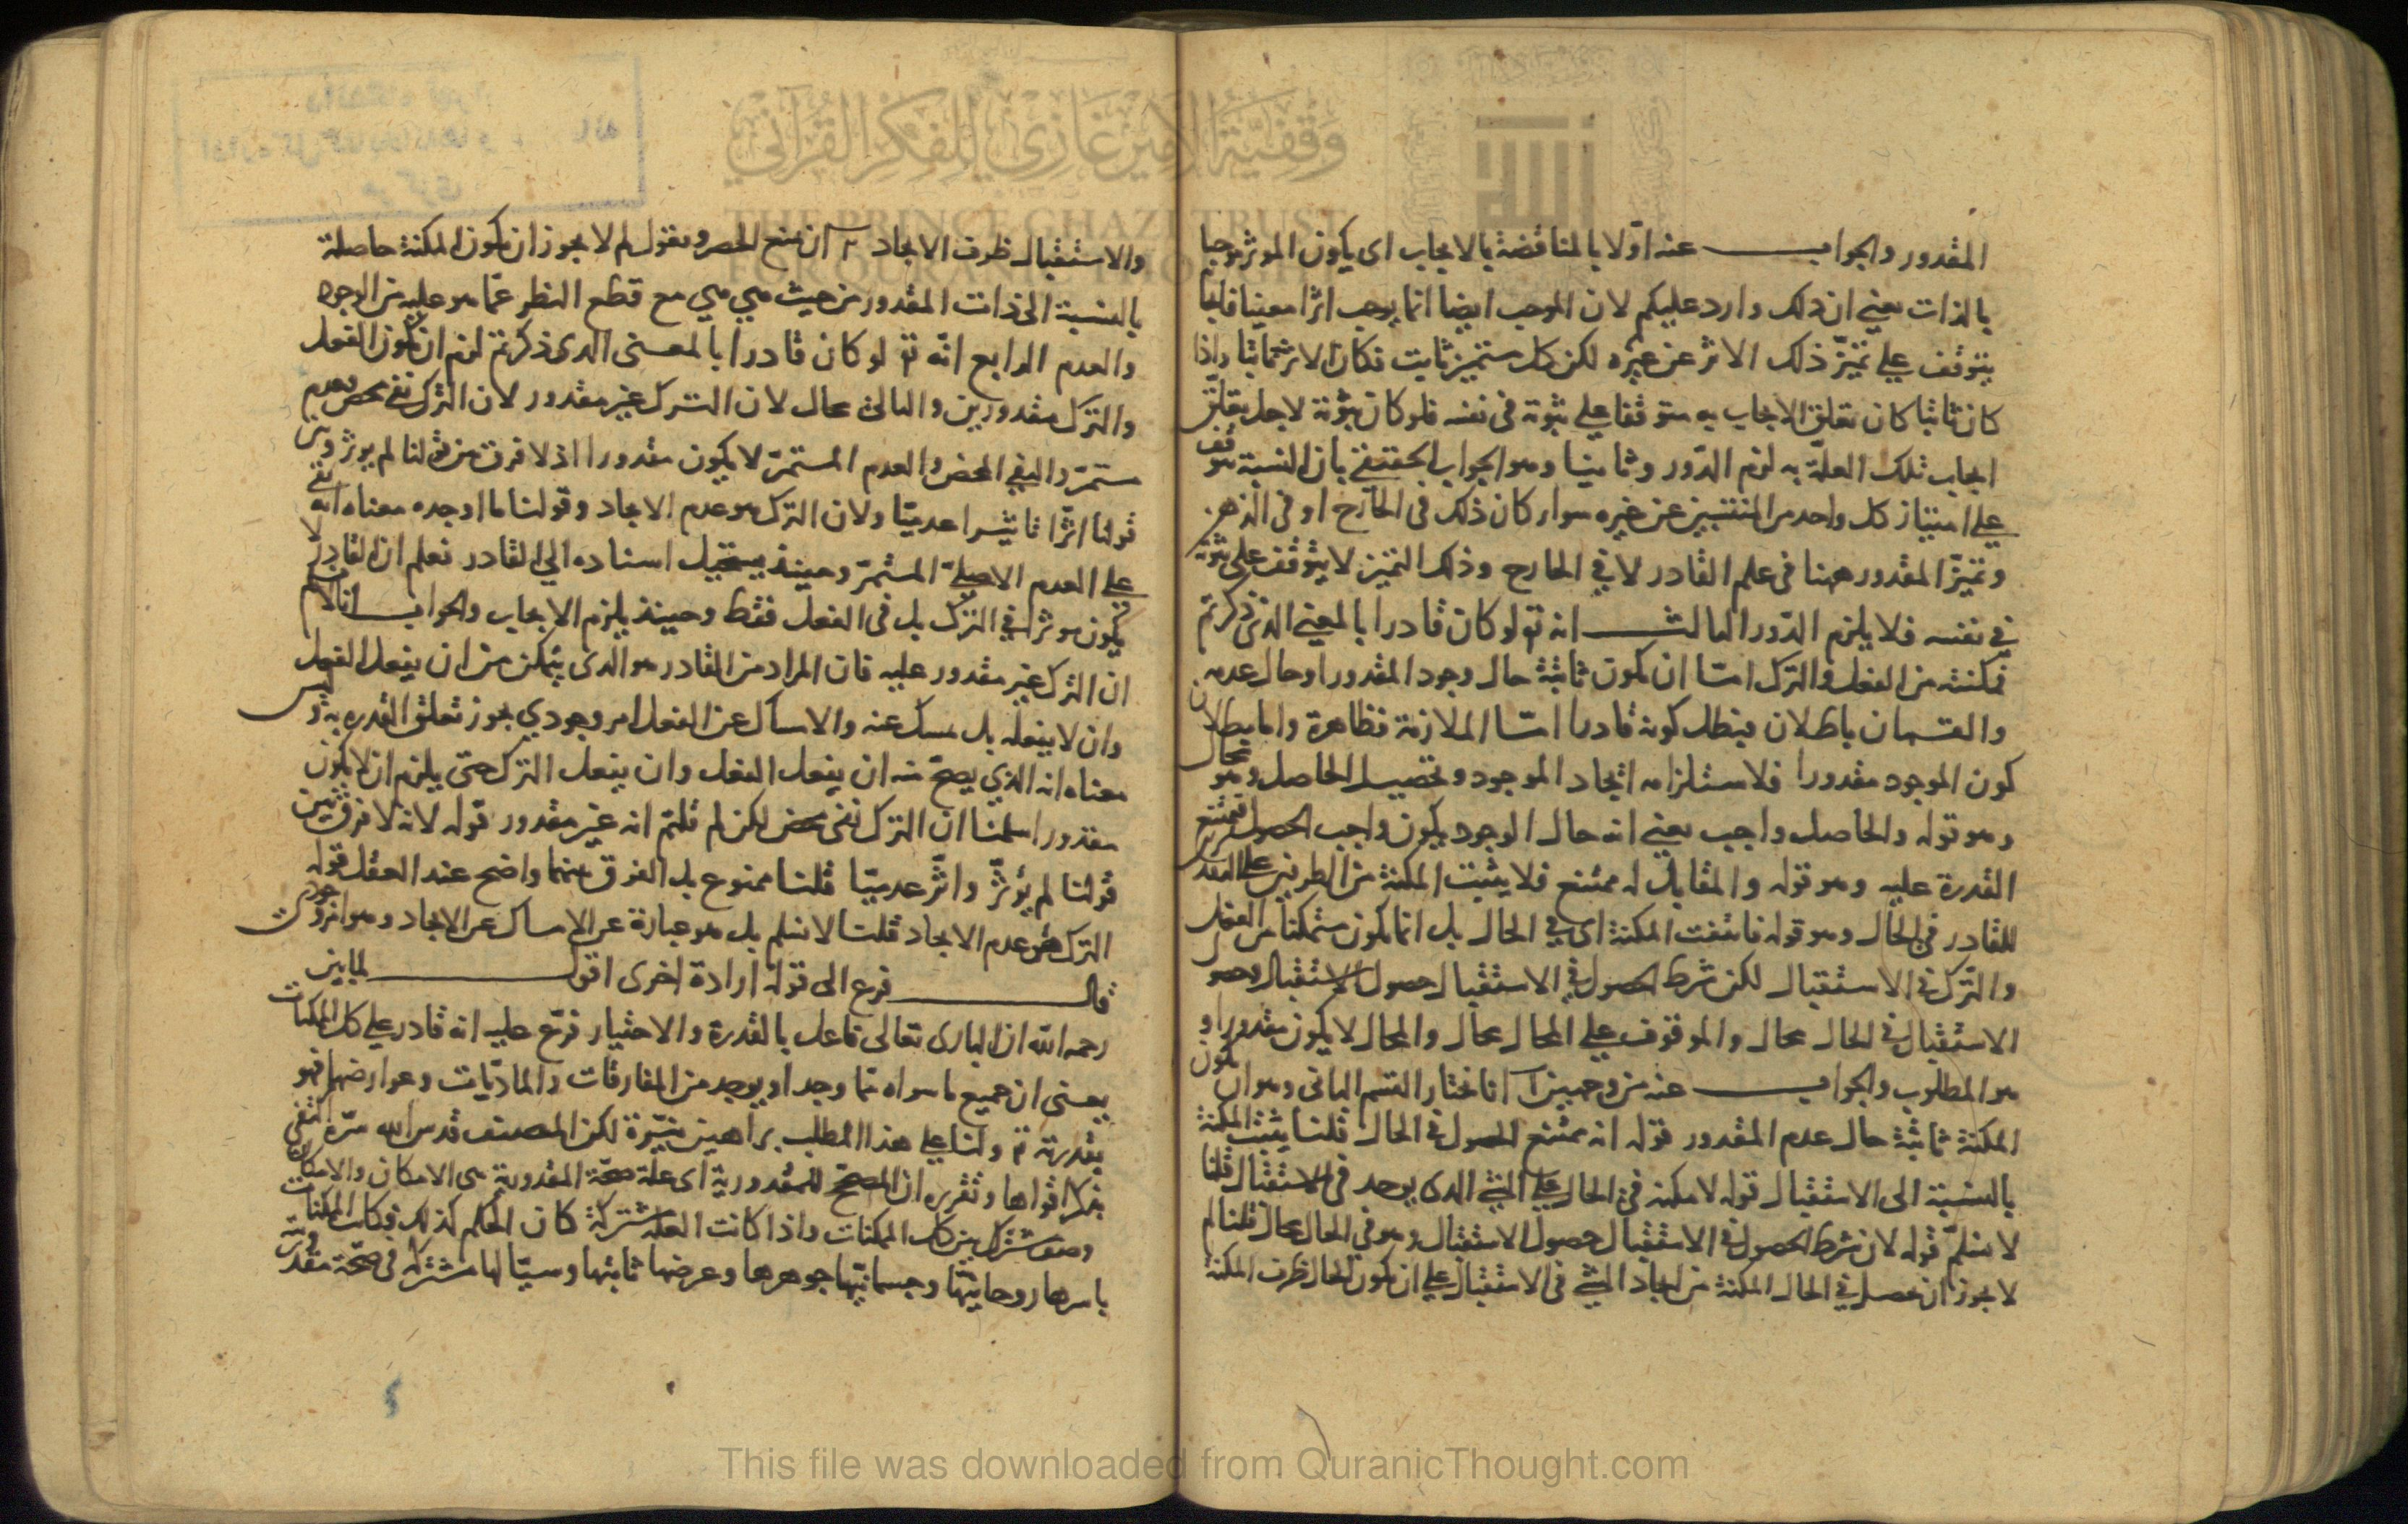 المقدور والجواب عنه اوّلا بالمناقضة بالايجاب اى يكون الموثر موجبا
بالذات يعنى ان ذلك وارد عليكم لان الموجب ايضا انما يوجب اثرا معينا فايجا
يتوقف على تميّز ذلك الاثر عن غيره لكن كل متميز ثابت فكان الاثر ثابتا واذا
كان ثابتا كان تعلق الايجاب به متوقفا على ثبوته فى نفسه فلو كان ثبوته لاجل تعلّق
ايجاب تلك العلّة به لزم الدّور وثانيا وهو الجواب الحقيقى بان النسبة تتوقف
على امتياز كل واحد من المنتسبين عن غيره سواء كان ذلك فى الخارج او فى الذهن
وتميّز المقدور ههنا فى علم القادر لا فى الخارج وذلك التميز لا يتوقف على ثبوته
فى نفسه فلا يلزم الدّور الثالث انه تع لو كان قادرا بالمعنى الذى ذكرتم
فمكنته من الفعل والترك امّا ان تكون ثابتة حال وجود المقدور او حال عدمه
والقسمان باطلان فبطل كونه قادرا امّا الملازمة فظاهرة واما بطلان
كون الموجود مقدورا فلاستلزامه ايجاد الموجود وتحصيل الحاصل وهو محال
وهو قوله والحاصل واجب يعنى انه حال الوجود يكون واجب الحصول فيمتنع
القدرة عليه وهو قوله والمقابل له ممتنع فلا يثبت المكنة من الطرفين على
للقادر فى الحال وهو قوله فانتفت المكنة اى فى الحال بل انما يكون متمكنا من الفعل
والترك فى الاستقبال لكن شرط الحصول فى الاستقبال حصول الاستقبال وحصو
الاستقبال فى الحال محال والموقوف على المحال محال والمحال لا يكون مقدورا و
هو المطلوب والجواب عنه من وجهين آ انا نختار القسم الثانى وهو ان تكون
المكنة ثابتة حال عدم المقدور قوله انه ممتنع الحصول فى الحال قلنا يثبت المكنة
بالنسبة الى الاستقبال قوله لا مكنة فى الحال على الشئ الذى يوجد فى الاستقبال قلنا
لا نسلّم قوله لان شرط الحصول فى الاستقبال حصول الاستقبال وهو فى الحال محال قلنا لم
لا يجوز ان يحصل فى الحال المكنة من ايجاد الشئ فى الاستقبال على ان يكون الحال ظرف المكنة
والاستقبال ظرف الايجاد ٢ ان نمنع الحصر ونقول لم لا يجوز ان تكون المكنة حاصلة
بالنسبة الى ذات المقدور من حيث هى هى مع قطع النظر عمّا هو عليه من الوجود
والعدم الرابع انّه تع لو كان قادرا بالمعنى الذى ذكرتم لزم ان يكون الفعل
والترك مقدورين والتالى محال لان الترك غير مقدور لان الترك نفى محض وعدم
مستمرّ والنفى المحض والعدم المستمرّ لا يكون مقدورا اذ لا فرق بين قولنا لم يوثر وبين
قولنا اثّر تاثيرا عدميّا ولان الترك هو عدم الايجاد وقولنا ما اوجده معناه انه بقى
على العدم الاصلىّ المستمرّ وحينئذ يستحيل اسناده الى القادر فعلم ان القادر لا
يكون موثرا فى الترك بل فى الفعل فقط وحينئذ يلزم الايجاب والجواب انا لا نسلم
ان الترك غير مقدور عليه فان المراد من القادر هو الذى يتمكن من ان يفعل الفعل
وان لا يفعله بل يمسك عنه والامساك عن الفعل امر وجودي يجوز تعلق القدره به وليس
معناه انه الذي يصحّ منه ان يفعل الفعل وان يفعل الترك حتى يلزم ان لا يكون
مقدورا سلمنا ان الترك نفى محض لكن لم قلتم انه غير مقدور قوله لانه لا فرق بين
قولنا لم يؤثّر واثّر عدميّا قلنا ممنوع بل الفرق بينهما واضح عند العقل قوله
الترك هو عدم الايجاد قلنا لا نسلم بل هو عبارة عن الامساك عن الايجاد وهو امر وجودى
قال فرع الى قوله ارادة اخرى اقول لما بين
رحمه الله ان البارى تعالى فاعل بالقدرة والاختيار فرّع عليه انه قادر على كل الممكنات
يعنى ان جميع ما سواه مما وجد او يوجد من المفارقات والماديّات وعوارضهما فهو
بقدرته تع ولنا على هذا المطلب براهين نيّرة لكن المصنف قدس الله سرّه اكتفى
بذكر اقواها وتقريره ان المصحّح للمقدورية اى علة صحّة المقدورية هى الامكان والامكان
وصف مشترك بين كل الممكنات واذا كانت العلّه مشتركة كان الحكم كذلك فكانت الممكنات
باسرها روحانيتها وجسمانيتها جوهرها وعرضها ثابتها وسيّالها مشتركة فى صحّة مقدوريّته
This file was downloaded from QuranicThought.com
وقفية الأمير غازي للفكر القرآني
THE PRINCE GHAZI TRUST
FOR QUR'ANIC THOUGHT